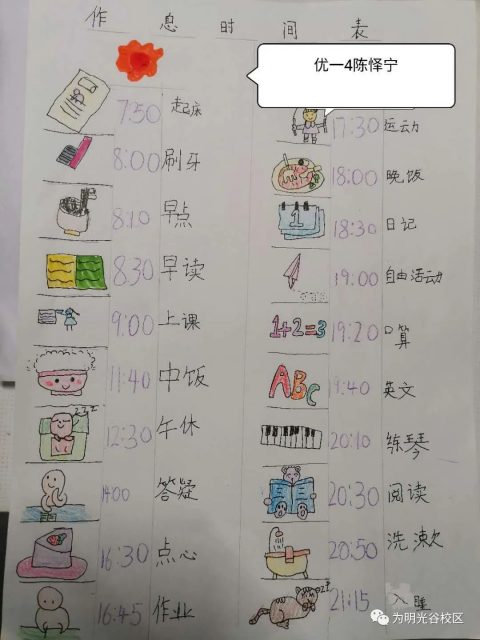 作息时间表
优一4陈怿宁
7:50 起床
8:00 刷牙
8:10 早点
8:30 早读
9:00 上课
11:40 中饭
12:30 午休
14:00 答疑
16:30 点心
16:45 作业
17:30 运动
18:00 晚饭
18:30 日记
1
19:00 自由活动
1+2=3 19:20 口算
ABC 19:40 英文
20:10 练琴
20:30 阅读
20:50 洗漱
21:15 入睡
为明光谷校区